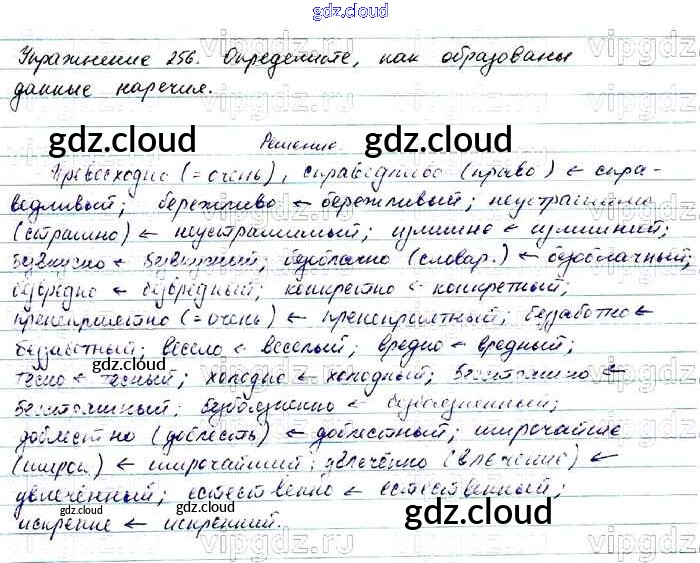 gdz.cloud
Упражнение 256. Определите, как образованы
данные наречия.
gdz.cloud gdz.cloud
Решение.
Превосходно (=очень), справедливо (право) ← спра-
ведливый; бережливо ← бережливый; неустрашимо
(страшно) ← неустрашимый; излишно ← излишний;
безвкусно ← безвкусный; безоблачно (словар.) ← безоблачный;
безвредно ← безвредный; конкретно ← конкретный;
преисприятно (=очень) ← преисприятный; беззаботно ←
беззаботный; весело ← веселый; вредно ← вредный;
gdz.cloud gdz.cloud
тесно ← тесный; холодно ← холодный;
безболезненно ← безболезненный;
доблестно (доблесть) ← доблестный; широчайше
(широк.) ← широчайший; увлечённо (влечение) ←
увлеченный; естественно ← естественный;
искренне ← искренний.
gdz.cloud gdz.cloud gdz.cloud
vipgdz.ru